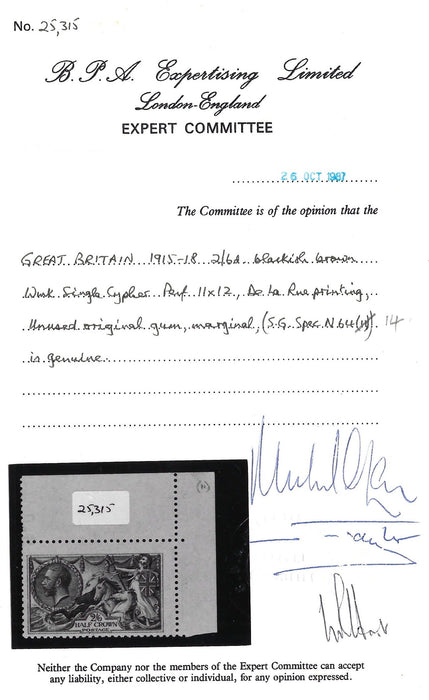 No. 25,315
B. P. A. Expertising Limited
London-England
EXPERT COMMITTEE
26 OCT 1987
The Committee is of the opinion that the
GREAT BRITAIN 1915-18 2/6d blackish brown
Wmk Single Cypher Perf 11x12, De La Rue printing,
Unused original gum, marginal, (S.G. Spec N64 14
is genuine
25,315
2/6
HALF CROWN
POSTAGE
Neither the Company nor the members of the Expert Committee can accept
any liability, either collective or individual, for any opinion expressed.